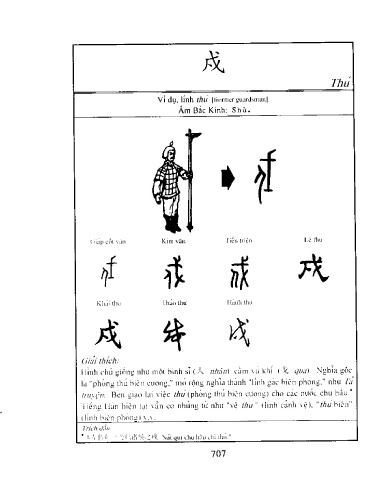 戍
Thú
Ví dụ, lính thú [frontier guardsman].
Âm Bắc Kinh: Shù.
Giáp cốt văn Kim văn Tiểu triện Lệ thư
Khải thư Thảo thư Hành thư
戍
Giải thích:
Hình chữ giống như một binh sĩ (人 nhân) cầm vũ khí (戈 qua). Nghĩa gốc
là "phòng thủ biên cương," mở rộng nghĩa thành "lính gác biên phòng," như Tả
truyện. Bèn giao lại việc thú (phòng thủ biên cương) cho các nước chư hầu."
Tiếng Hán hiện tại vẫn có những từ như "vệ thú" (lính cảnh vệ), "thú biên"
(lính biên phòng) v.v.
Trích dẫn
707